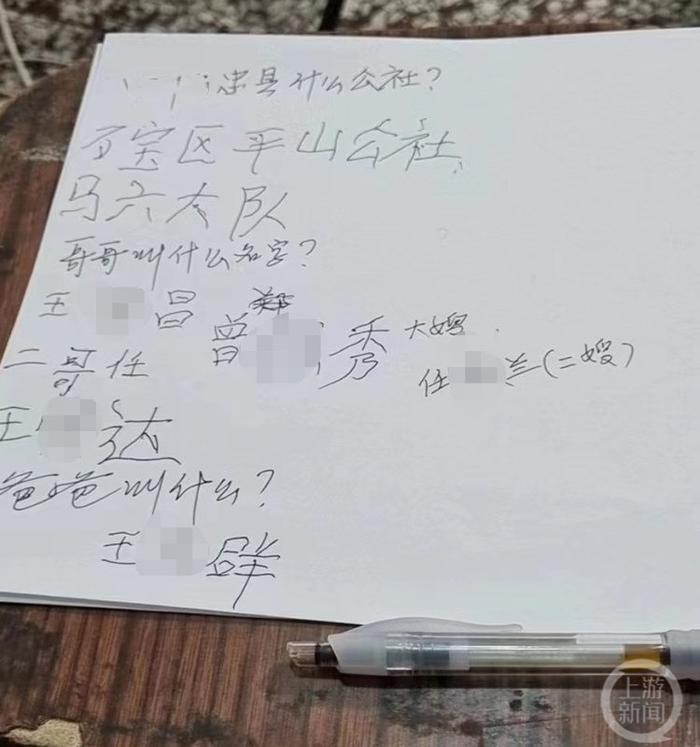 忠县什么公社?
石宝区平山公社
马六大队
哥哥叫什么名字?
王 昌
曾 秀 大嫂
二哥任 任 兰(二嫂)
王 达
爸爸叫什么?
王 群
上游新闻